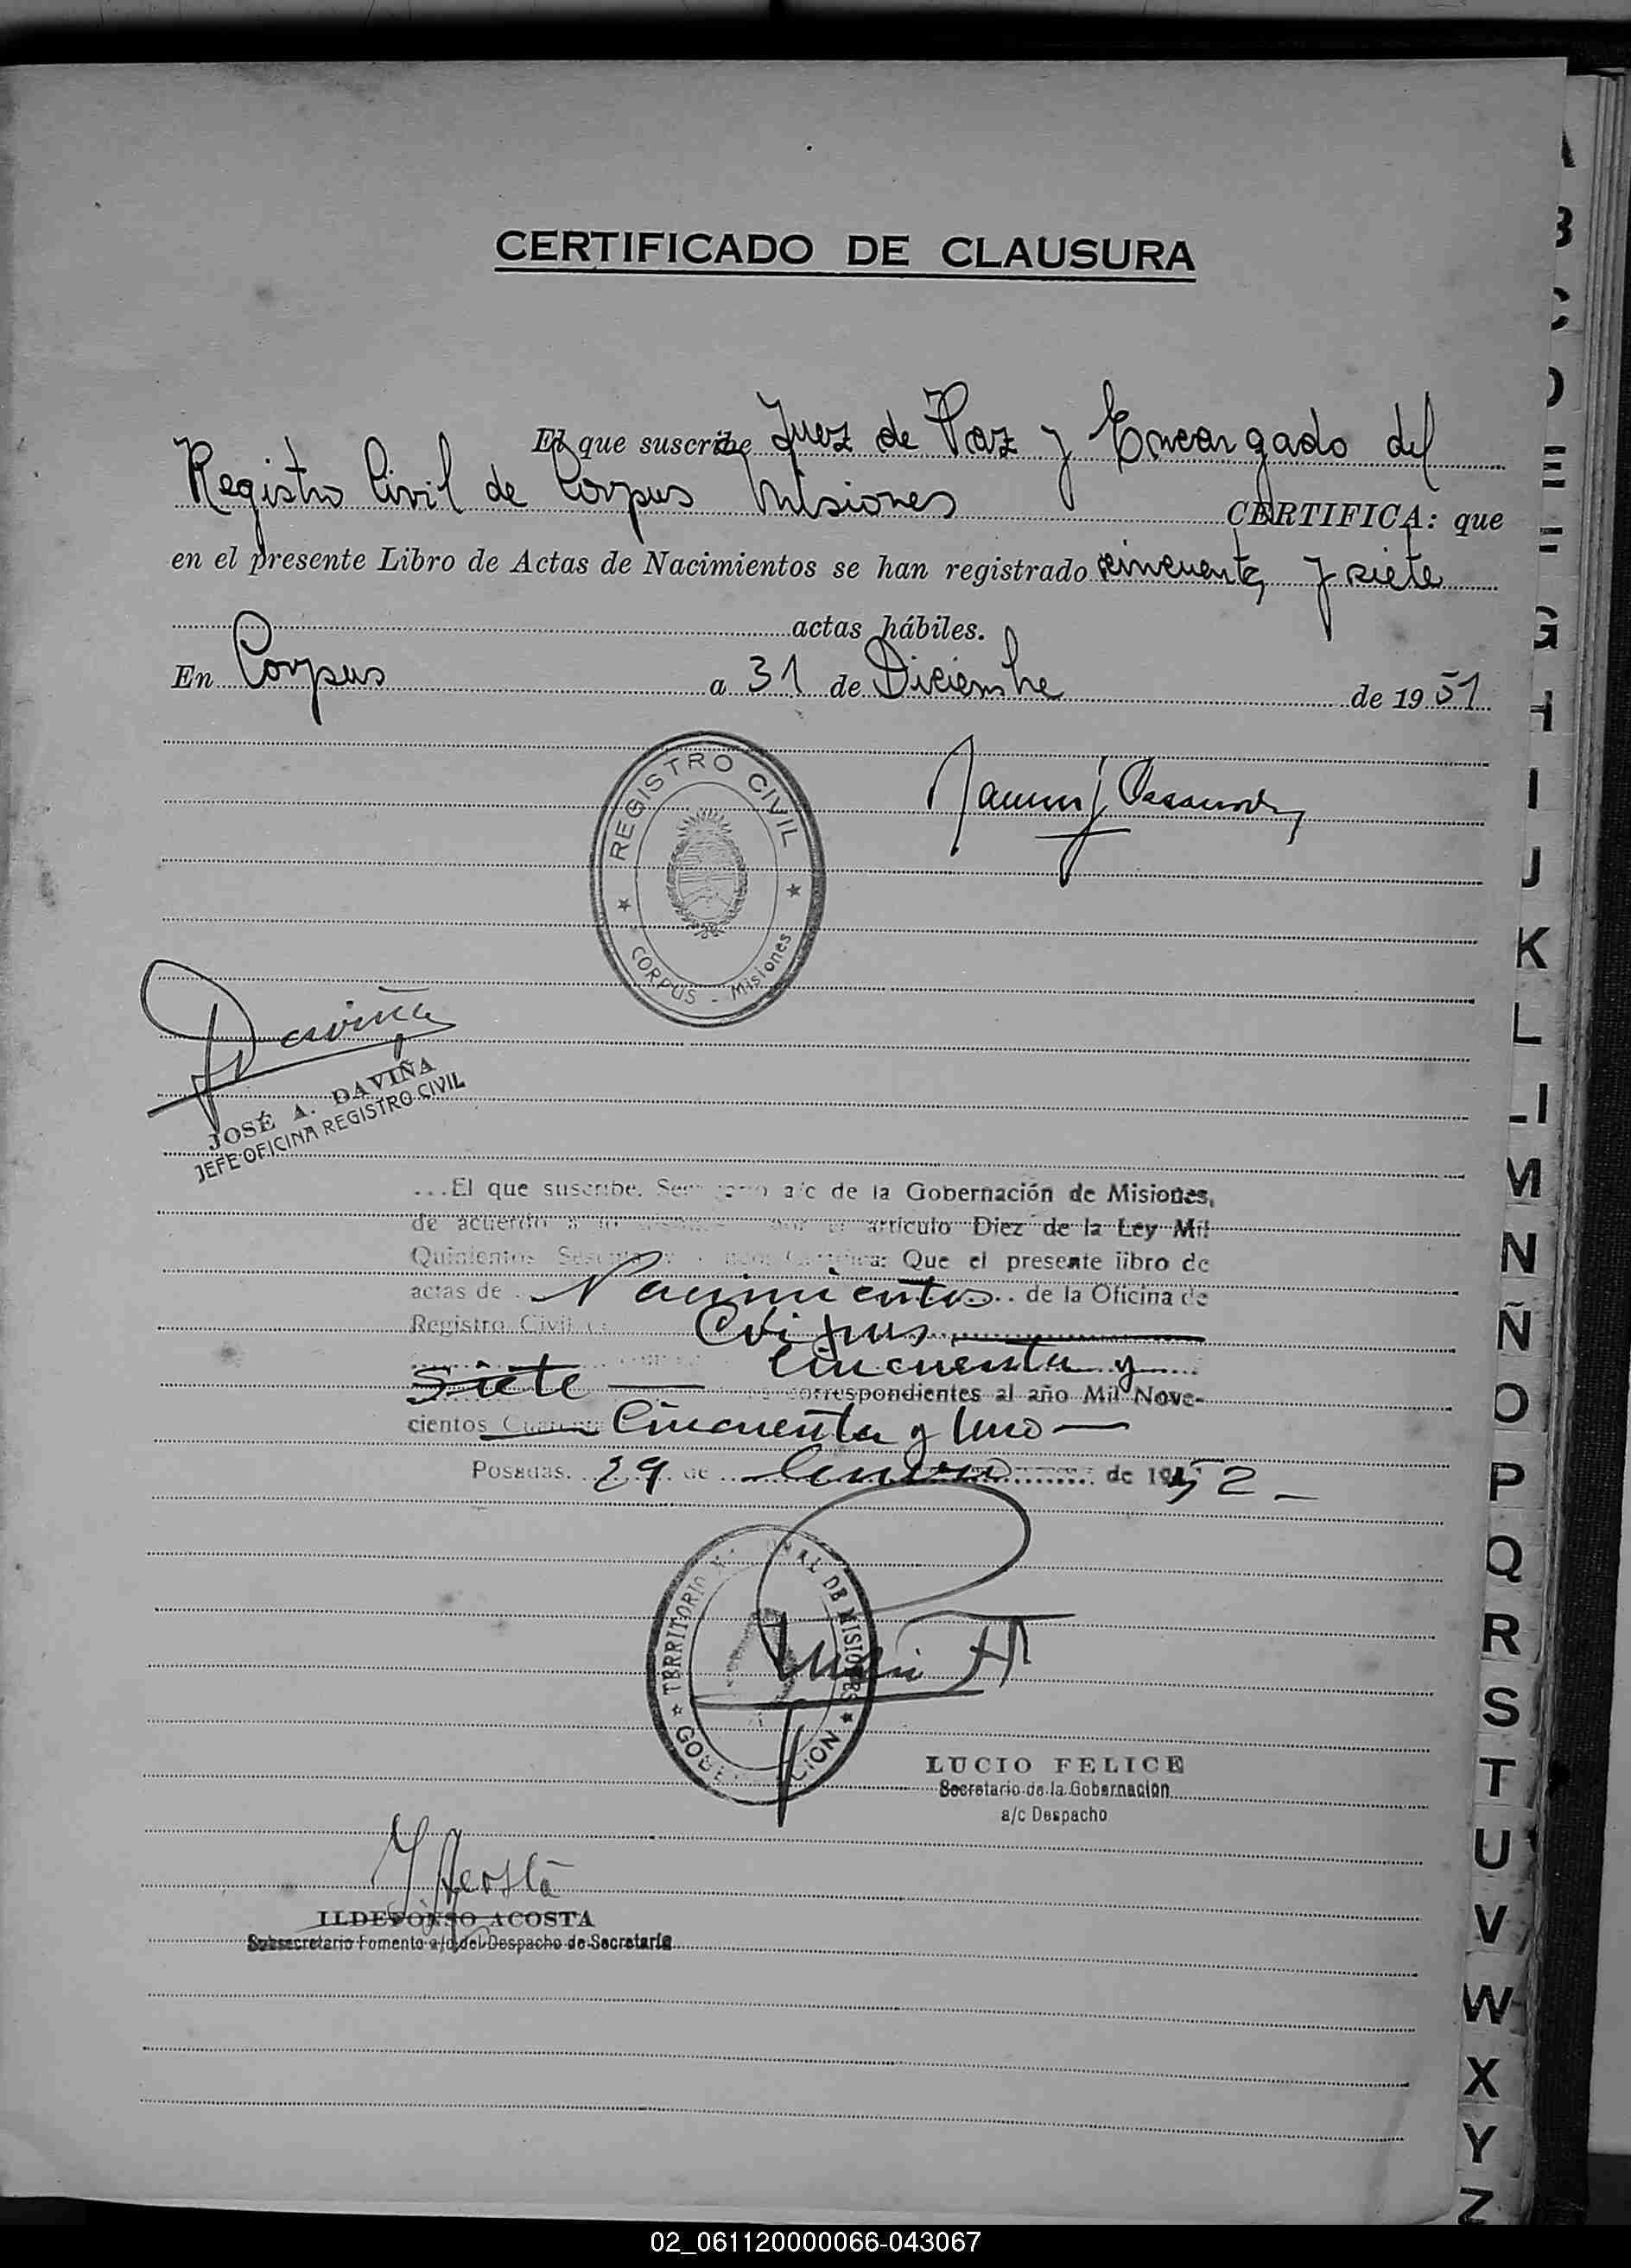 CERTIFICADO DE CLAUSURA
El que suscribe Juez de Paz y Encargado del
Registro Civil de Corpus Misiones CERTIFICA: que
en el presente Libro de Actas de Nacimientos se han registrado cincuenta y siete
actas hábiles.
En Corpus a 31 de Diciembre de 1951
REGISTRO CIVIL
CORPUS - Misiones
Daviña
JOSÉ A. DAVIÑA
JEFE OFICINA REGISTRO CIVIL
...El que suscribe, a/c de la Gobernación de Misiones,
de acuerdo a lo artículo Diez de la Ley Mil
Quinientos Que el presente libro de
actas de Nacimientos de la Oficina de
Registro Civil Corpus
Cincuenta y
Siete correspondientes al año Mil Nove-
cientos Cincuenta y Uno
Posadas, 29 de Enero de 1952
TERRITORIO DE MISIONES
LUCIO FELICE
Secretario de la Gobernacion
a/c Despacho
ILDEFONSO ACOSTA
Subsecretario Fomento a/c del Despacho de Secretaría
B
C
D
E
F
G
H
I
J
K
L
Ll
M
N
Ñ
O
P
Q
R
S
T
U
V
W
X
Y
Z
02_061120000066-043067